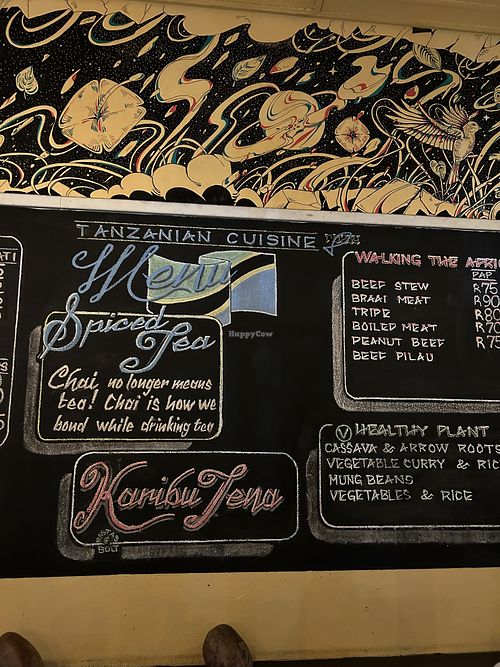 TANZANIAN CUISINE
Menu
Spiced
Tea
Chai no longer means
tea! Chai is how we
bond while drinking tea
Karibu Tena
BOLT
WALKING THE AFRIC
PAP
BEEF STEW R75
BRAAI MEAT R90
TRIPE R80
BOILED MEAT R70
PEANUT BEEF R75
BEEF PILAU
V HEALTHY PLANT
CASSAVA & ARROW ROOTS
VEGETABLE CURRY & RIC
MUNG BEANS
VEGETABLES & RICE
HappyCow